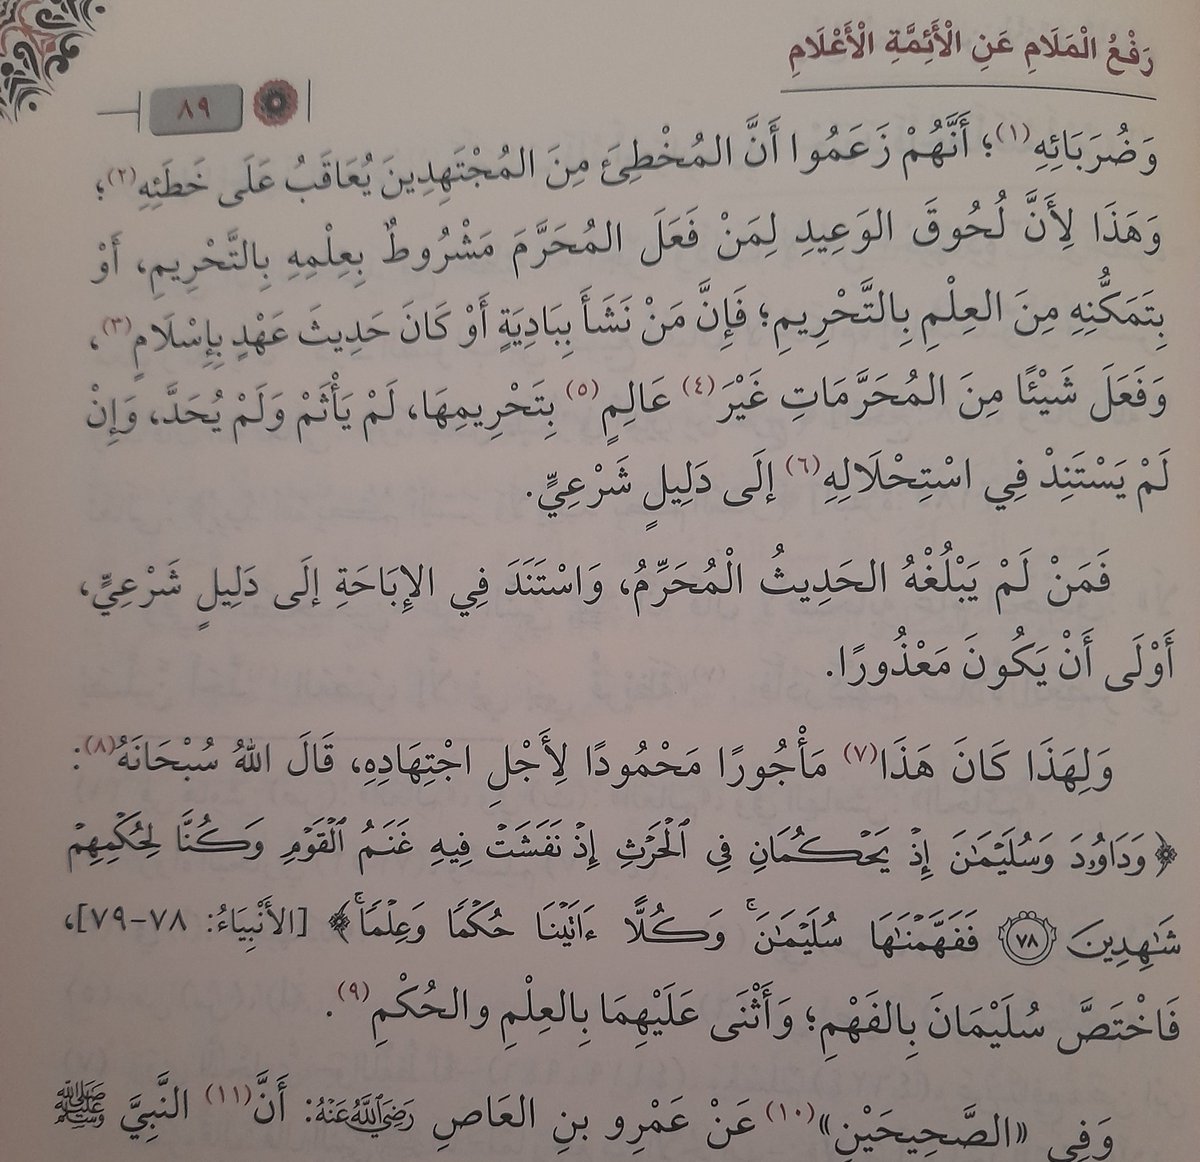 رَفْعُ الْمَلَامِ عَنِ الْأَئِمَّةِ الْأَعْلَامِ
٨٩
وَضُرَبَائِهِ(١)؛ أَنَّهُمْ زَعَمُوا أَنَّ المُخْطِئَ مِنَ المُجْتَهِدِينَ يُعَاقَبُ عَلَى خَطَئِهِ(٢)؛
وَهَذَا لِأَنَّ لُحُوقَ الوَعِيدِ لِمَنْ فَعَلَ المُحَرَّمَ مَشْرُوطٌ بِعِلْمِهِ بِالتَّحْرِيمِ، أَوْ
بِتَمَكُّنِهِ مِنَ العِلْمِ بِالتَّحْرِيمِ؛ فَإِنَّ مَنْ نَشَأَ بِبَادِيَةٍ أَوْ كَانَ حَدِيثَ عَهْدٍ بِإِسْلَامٍ(٣)،
وَفَعَلَ شَيْئًا مِنَ المُحَرَّمَاتِ غَيْرَ(٤) عَالِمٍ(٥) بِتَحْرِيمِهَا، لَمْ يَأْثَمْ وَلَمْ يُحَدَّ، وَإِنْ
لَمْ يَسْتَنِدْ فِي اسْتِحْلَالِهِ(٦) إِلَى دَلِيلٍ شَرْعِيٍّ.
فَمَنْ لَمْ يَبْلُغْهُ الحَدِيثُ الْمُحَرِّمُ، وَاسْتَنَدَ فِي الإِبَاحَةِ إِلَى دَلِيلٍ شَرْعِيٍّ،
أَوْلَى أَنْ يَكُونَ مَعْذُورًا.
وَلِهَذَا كَانَ هَذَا(٧) مَأْجُورًا مَحْمُودًا لِأَجْلِ اجْتِهَادِهِ، قَالَ اللهُ سُبْحَانَهُ(٨):
﴿وَدَاوُۥدَ وَسُلَيْمَٰنَ إِذْ يَحْكُمَانِ فِي ٱلْحَرْثِ إِذْ نَفَشَتْ فِيهِ غَنَمُ ٱلْقَوْمِ وَكُنَّا لِحُكْمِهِمْ
شَٰهِدِينَ ٧٨ فَفَهَّمْنَٰهَا سُلَيْمَٰنَۚ وَكُلًّا ءَاتَيْنَا حُكْمًا وَعِلْمًاۚ﴾ [الأَنْبِيَاءُ: ٧٨-٧٩]،
فَاخْتَصَّ سُلَيْمَانَ بِالفَهْمِ؛ وَأَثْنَى عَلَيْهِمَا بِالعِلْمِ والحُكْمِ(٩).
وَفِي «الصَّحِيحَيْنِ»(١٠) عَنْ عَمْرِو بنِ العَاصِ رَضِيَ اللَّهُ عَنْهُ: أَنَّ(١١) النَّبِيَّ ﷺ